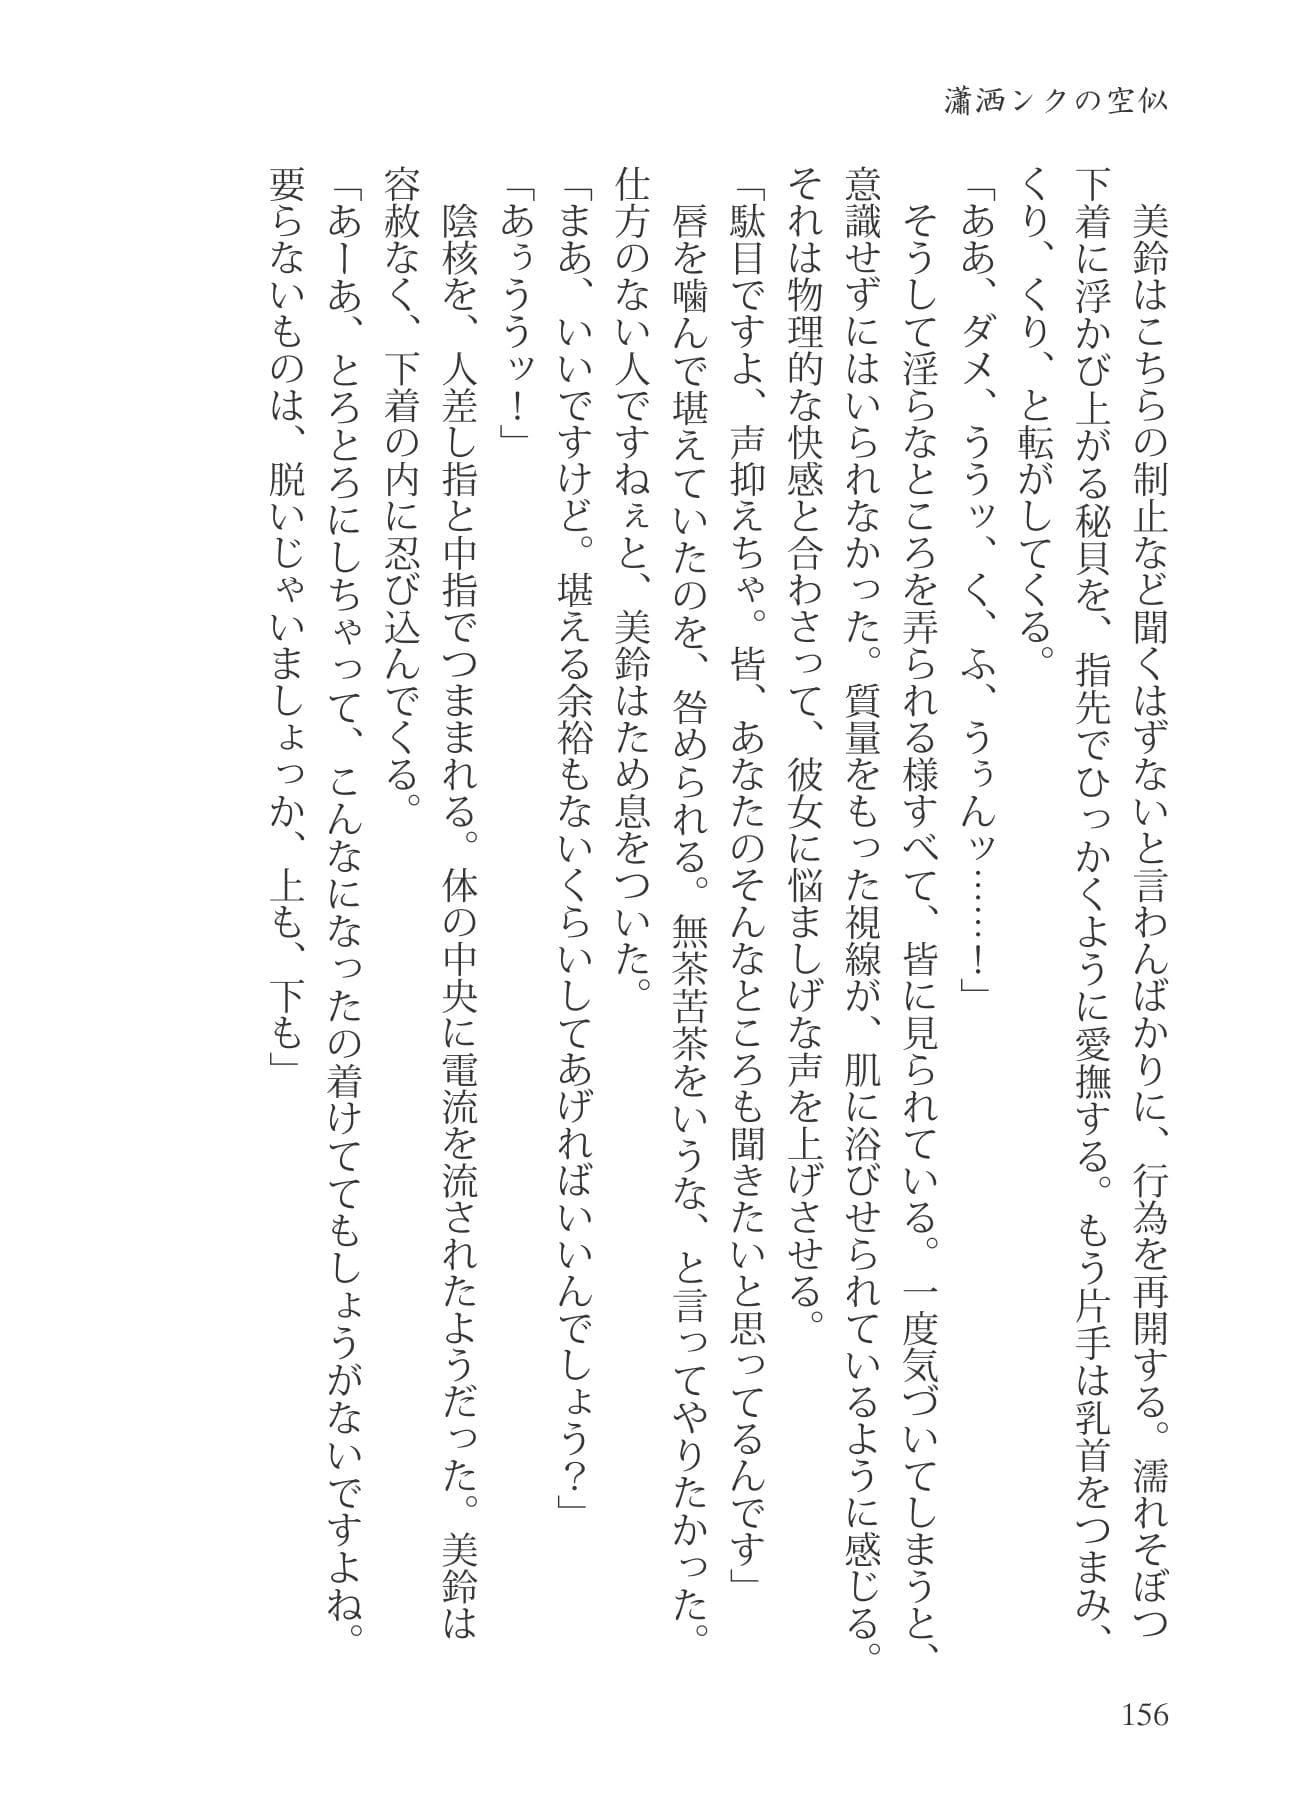 瀟洒ンクの空似
美鈴はこちらの制止など聞くはずないと言わんばかりに、行為を再開する。濡れそぼつ
下着に浮かび上がる秘貝を、指先でひっかくように愛撫する。もう片手は乳首をつまみ、
くり、くり、と転がしてくる。
「ああ、ダメ、ううッ、く、ふ、うぅんッ……！」
そうして淫らなところを弄られる様すべて、皆に見られている。一度気づいてしまうと、
意識せずにはいられなかった。質量をもった視線が、肌に浴びせられているように感じる。
それは物理的な快感と合わさって、彼女に悩ましげな声を上げさせる。
「駄目ですよ、声抑えちゃ。皆、あなたのそんなところも聞きたいと思ってるんです」
唇を噛んで堪えていたのを、咎められる。無茶苦茶をいうな、と言ってやりたかった。
仕方のない人ですねぇと、美鈴はため息をついた。
「まあ、いいですけど。堪える余裕もないくらいしてあげればいいんでしょう？」
「あぅううッ！」
陰核を、人差し指と中指でつままれる。体の中央に電流を流されたようだった。美鈴は
容赦なく、下着の内に忍び込んでくる。
「あーあ、とろとろにしちゃって、こんなになったの着けててもしょうがないですよね。
要らないものは、脱いじゃいましょっか、上も、下も」
156